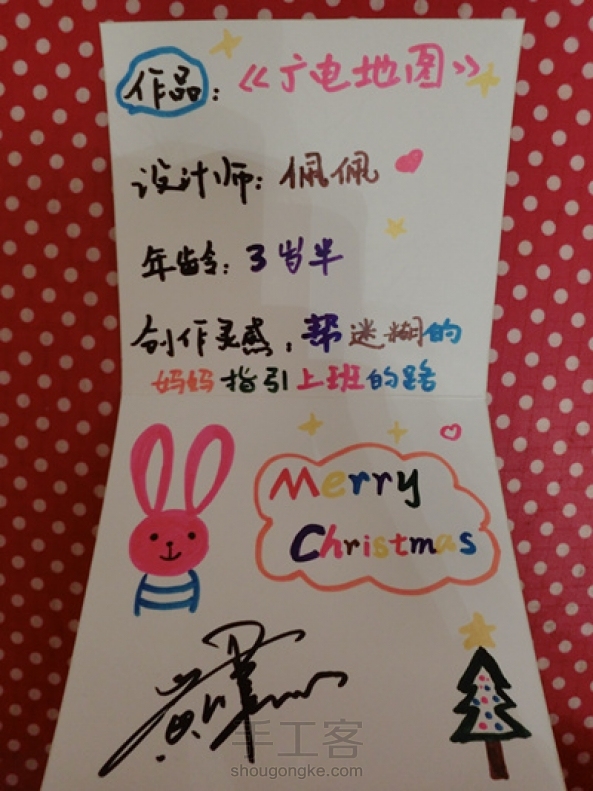 作品：《广电地图》
设计师：佩佩
年龄：3岁半
创作灵感：帮迷糊的
妈妈指引上班的路
Merry
Christmas
手工客
shougongke.com